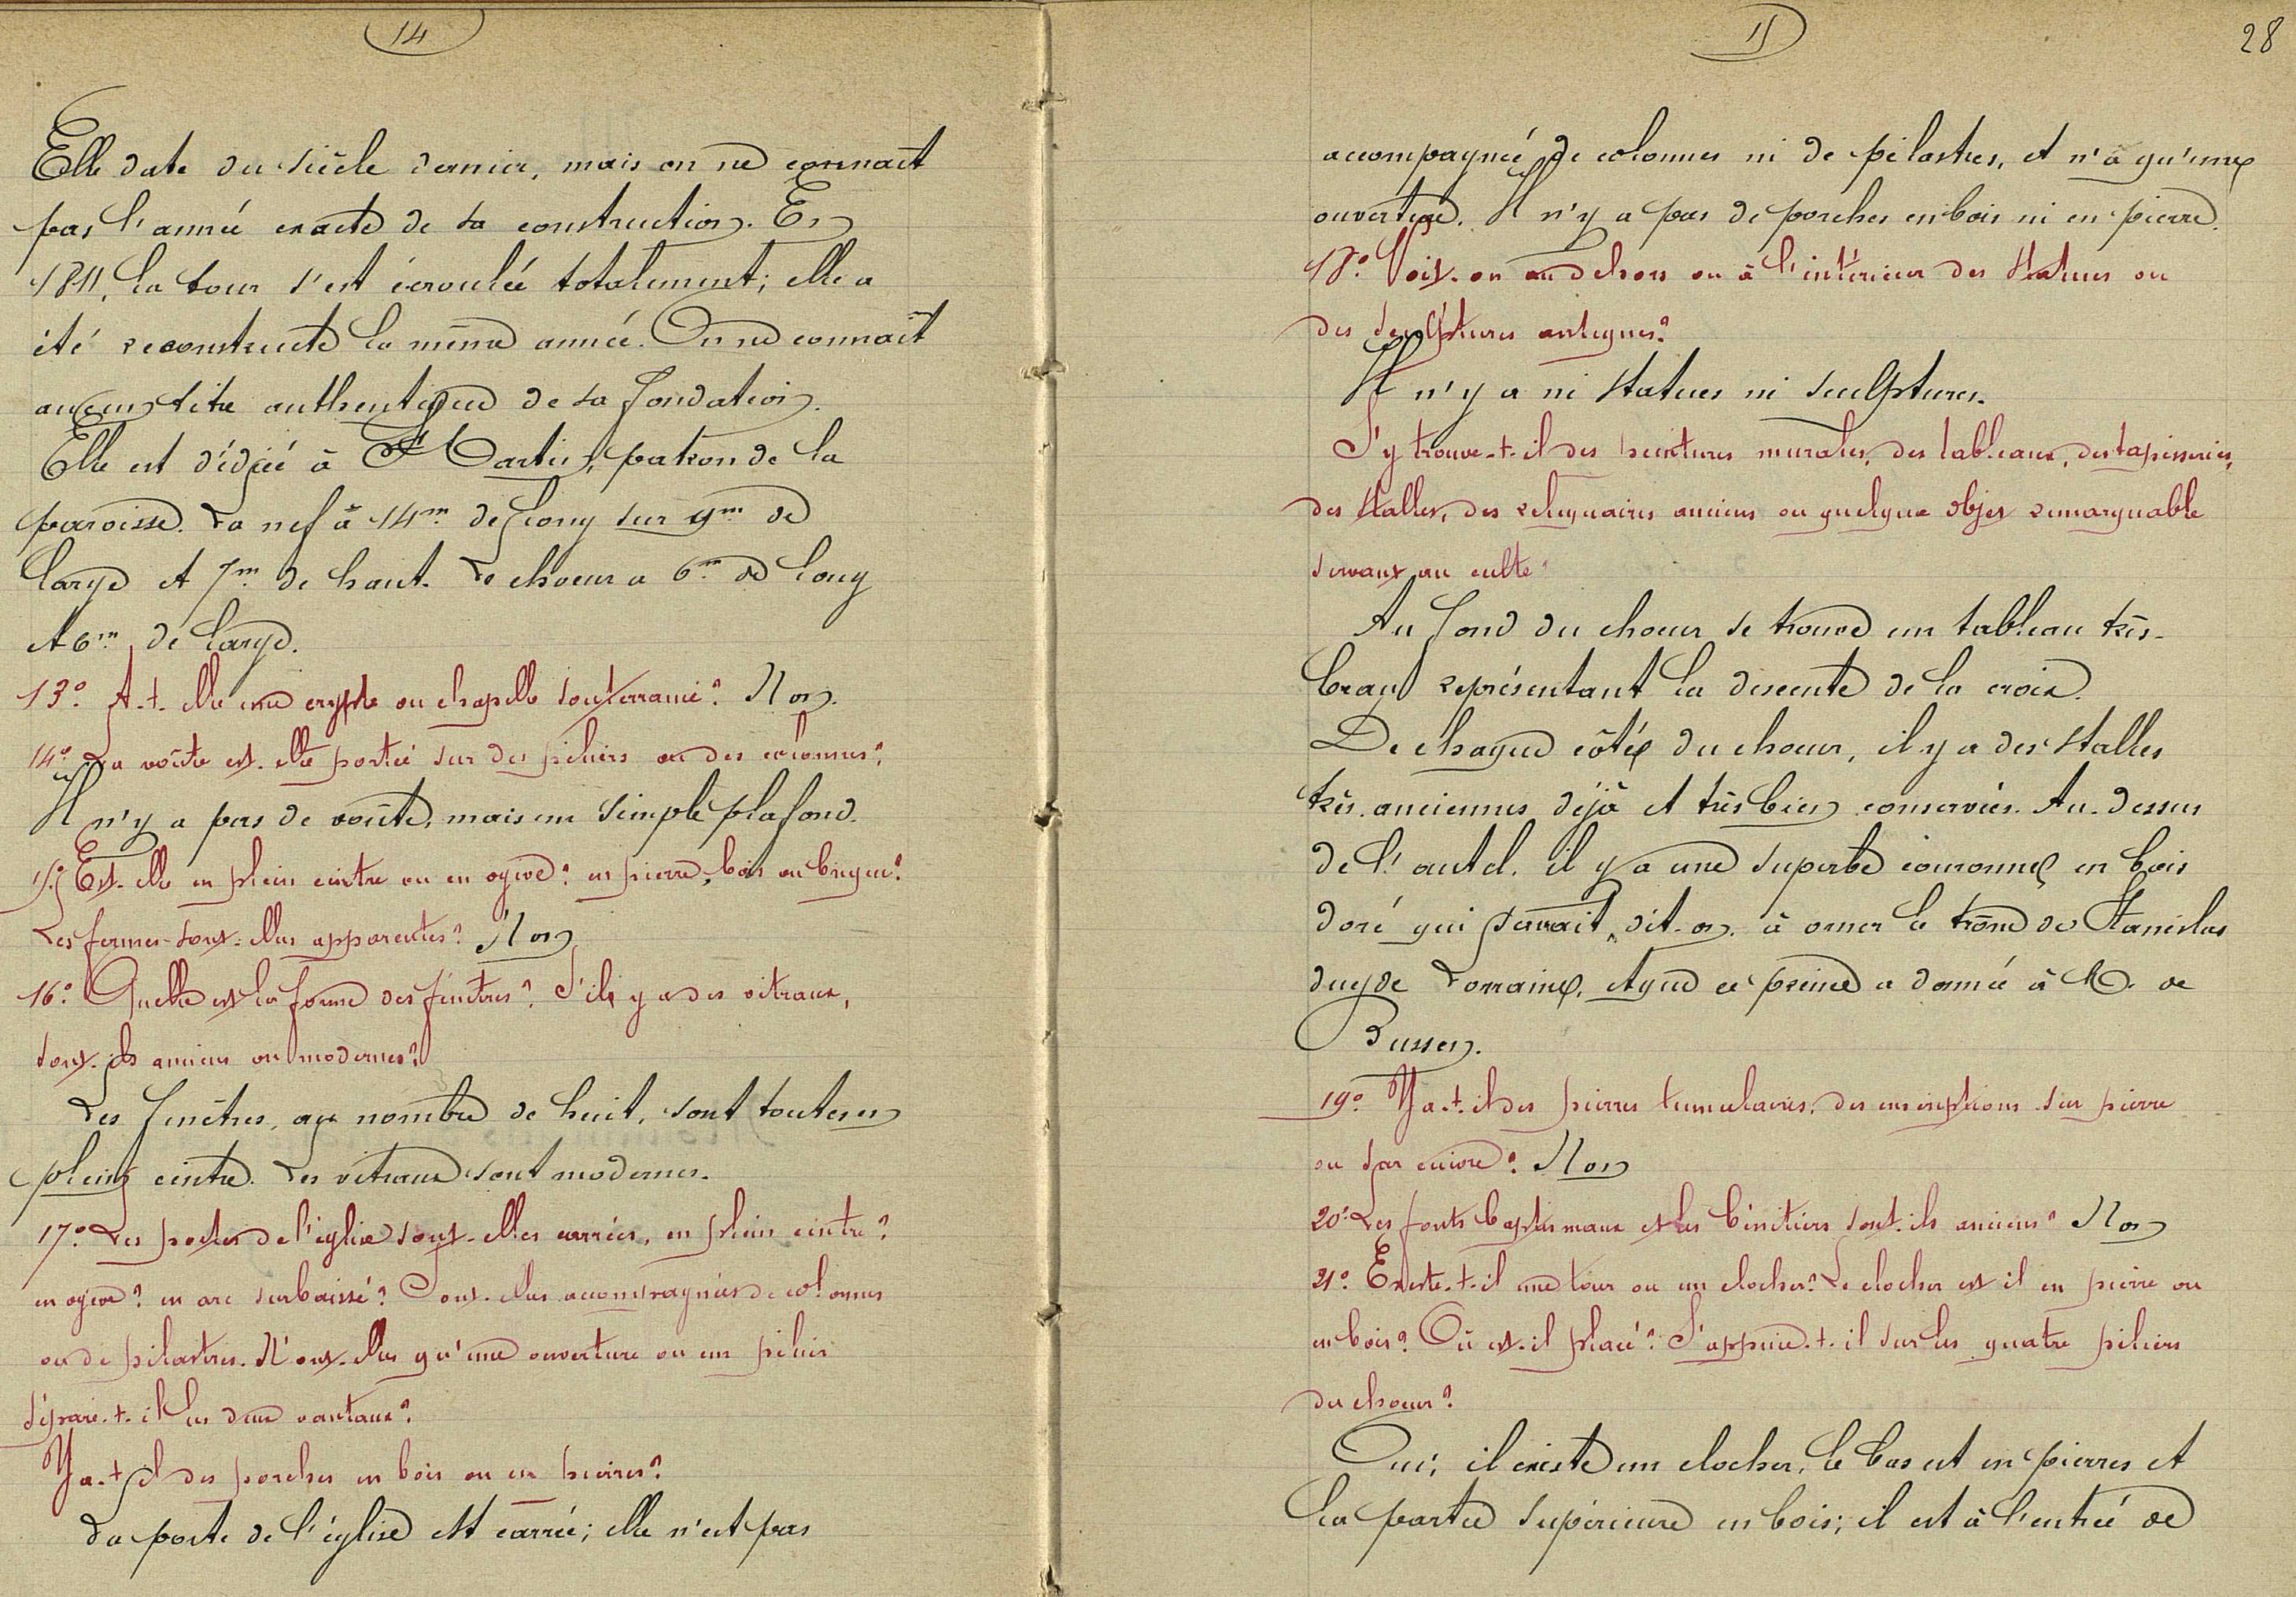 14
Elle date du siècle dernier, mais on ne connaît
pas l'année exacte de sa construction. En
1811, la tour s'est écroulée totalement; elle a
été reconstruite la même année. On ne connaît
aucun titre authentique de sa fondation.
Elle est dédiée à St Martin, patron de la
paroisse. La nef a 14m de long sur 9m de
large et 7m de haut. Le choeur a 6m de long
et 6m de large.
13o. A-t-elle une crypte ou chapelle souterraine? Non.
14o La voûte est-elle portée sur des piliers ou des colonnes?
Il n'y a pas de voûte, mais un simple plafond.
15o Est-elle en plein cintre ou en ogive? en pierre, bois ou brique?
Les fermes sont-elles apparentes? Non
16o. Quelle est la forme des fenêtres? S'il y a des vitraux,
sont-ils anciens ou modernes?
Les fenêtres, au nombre de huit, sont toutes en
plein cintre. Les vitraux sont modernes.
17o. Les portes de l'église sont-elles carrées, en plein cintre?
en ogive? en arc surbaissé? Sont-elles accompagnées de colonnes
ou de pilastres. N'ont-elles qu'une ouverture ou un pilier
sépare-t-il les deux vantaux?
Y a-t-il des porches en bois ou en pierres?
La porte de l'église est carrée; elle n'est pas
15
28
accompagnée de colonnes ni de pilastres, et n'a qu'une
ouverture. Il n'y a pas de porches en bois ni en pierre.
18o. Voit-on au dehors ou à l'intérieur des statues ou
des sculptures antiques?
Il n'y a ni statues ni sculptures.
S'y trouve-t-il des peintures murales, des tableaux, des tapisseries,
des stalles, des reliquaires anciens ou quelque objet remarquable
servant au culte?
Au fond du choeur se trouve un tableau très-
beau représentant la descente de la croix.
De chaque côté du choeur, il y a des stalles
très-anciennes déjà et très bien conservées. Au-dessus
de l'autel, il y a une superbe couronne en bois
doré qui servait, dit-on, à orner le trône de Stanislas
duc de Lorraine, et que ce prince a donnée à M. de
Bussen.
19o. Y a-t-il des pierres tumulaires, des inscriptions sur pierre
ou sur cuivre? Non
20o Les fonts baptismaux et les bénitiers sont-ils anciens? Non
21o. Existe-t-il une tour ou un clocher? Le clocher est il en pierre ou
en bois? Où est-il placé? S'appuie-t-il sur les quatre piliers
du choeur?
Oui, il existe un clocher, le bas est en pierres et
la partie supérieure en bois; il est à l'entrée de